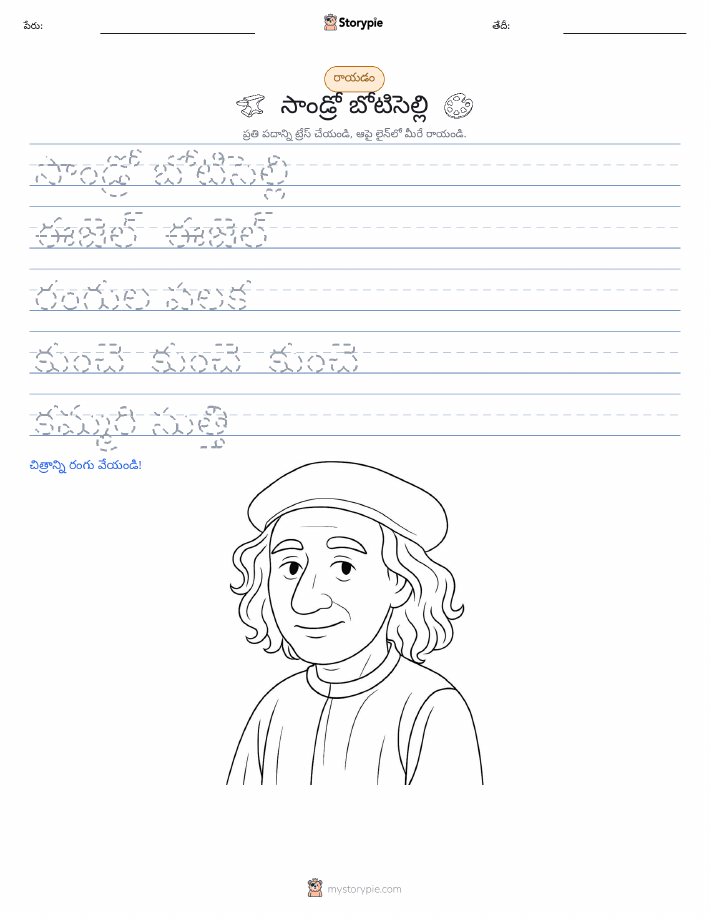 పేరు:
Storypie
తేదీ:
రాయడం
సాండ్రో బోటిసెల్లి
ప్రతి పదాన్ని ట్రేస్ చేయండి, ఆపై లైన్‌లో మీరే రాయండి.
సాండ్రో బోటిసెల్లి
ఈజెల్ ఈజెల్
రంగుల పలక
కుంచె కుంచె కుంచె
కమ్మరి సుత్తి
చిత్రాన్ని రంగు వేయండి!
mystorypie.com